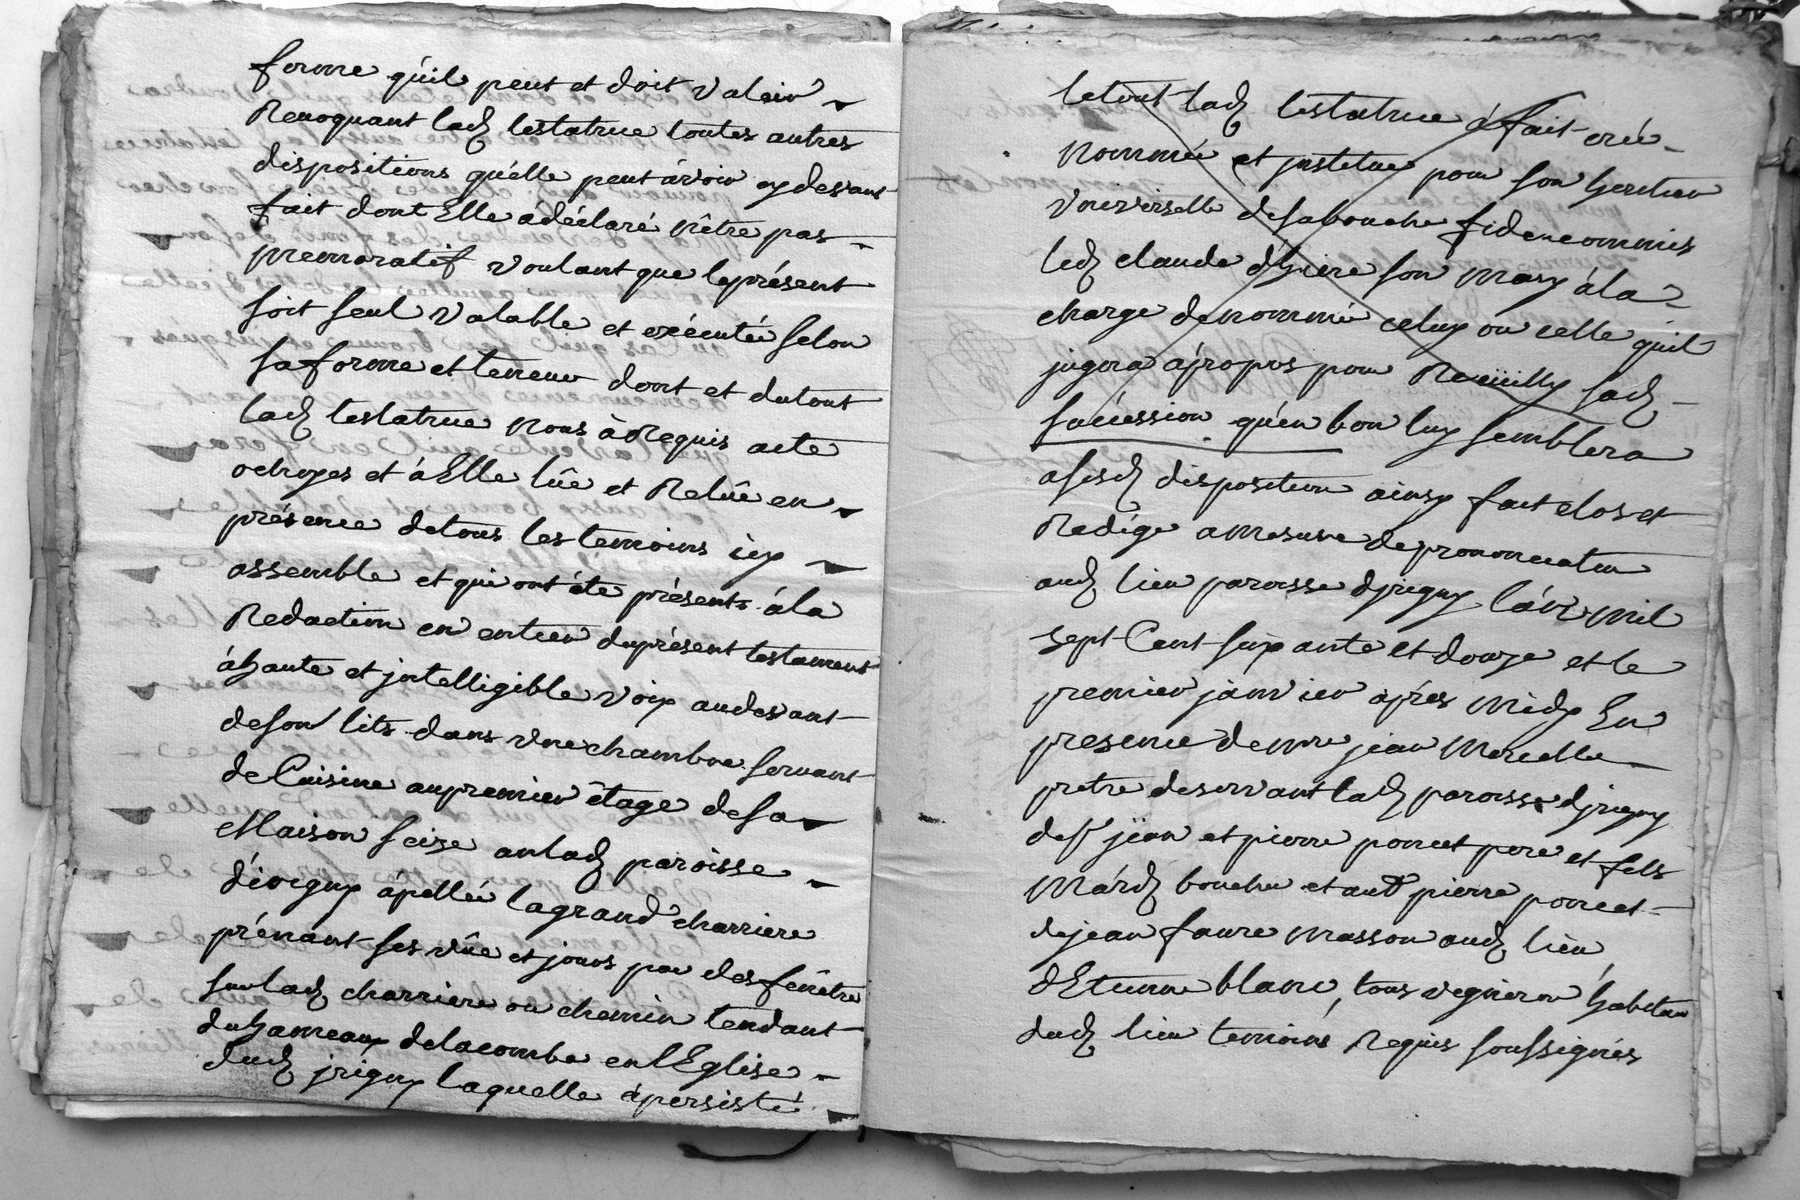 forme qu'il peut et doit valoir
Revoquant lad testatrice toutes autres
dispositions qu'elle peut ávoir cy devant
fait dont Elle a déclaré n'être pas
memoratif voulant que le présent
soit seul valable et exécuté selon
sa forme et teneur dont et du tout
lad testatrice nous à Requis acte
octroyes et á Elle lûe et Relûe en
présence de tous les temoins icy
assemble et qui ont éte présents á la
Redaction en entier du présent testament
á haute et jntelligible voix au devant
de son lits dans une chambre servant
de Cuisine au premier êtage de sa
Maison seize au lad paroisse
d'irigny ápellée la grand charriere
prénant ses vûe et jours par des fenêtre
sur lad charriere ou chemin tendant
du hameaux de la combe en l'Eglise
dud jrigny laquelle á persisté
le tout lad testatrice á fait créé
nommée et jnstitue pour son heritier
universelle de sa bouche fideicommis
led claude d'hiere son mary á la
charge de nommé celuy ou celle qu'il
jugera ápropos pour Recüilly sad
succéssion qu'en bon luy semblera
a sesd disposition ainsy fait clos et
Redigé a mesure de prononciation
aud lieu paroisse djrigny l'án mil
sept Cent soixante et douze et le
premier janvier aprés midy En
presence de mre jean Marcelle
pretre desservant lad paroisse djrigny
de sr jean et pierre poncet pere et fils
Márd boucher et autre pierre poncet
de jean faure masson aud lieu
d'Etienne blanc, tous vigneron habitan
dud lieu temoins Requis soussignés